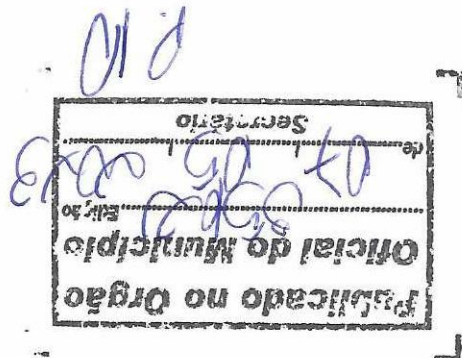 Publicado no Orgão
Oficial do Município
Edição
de 07 / 05 / 2023
Secretário